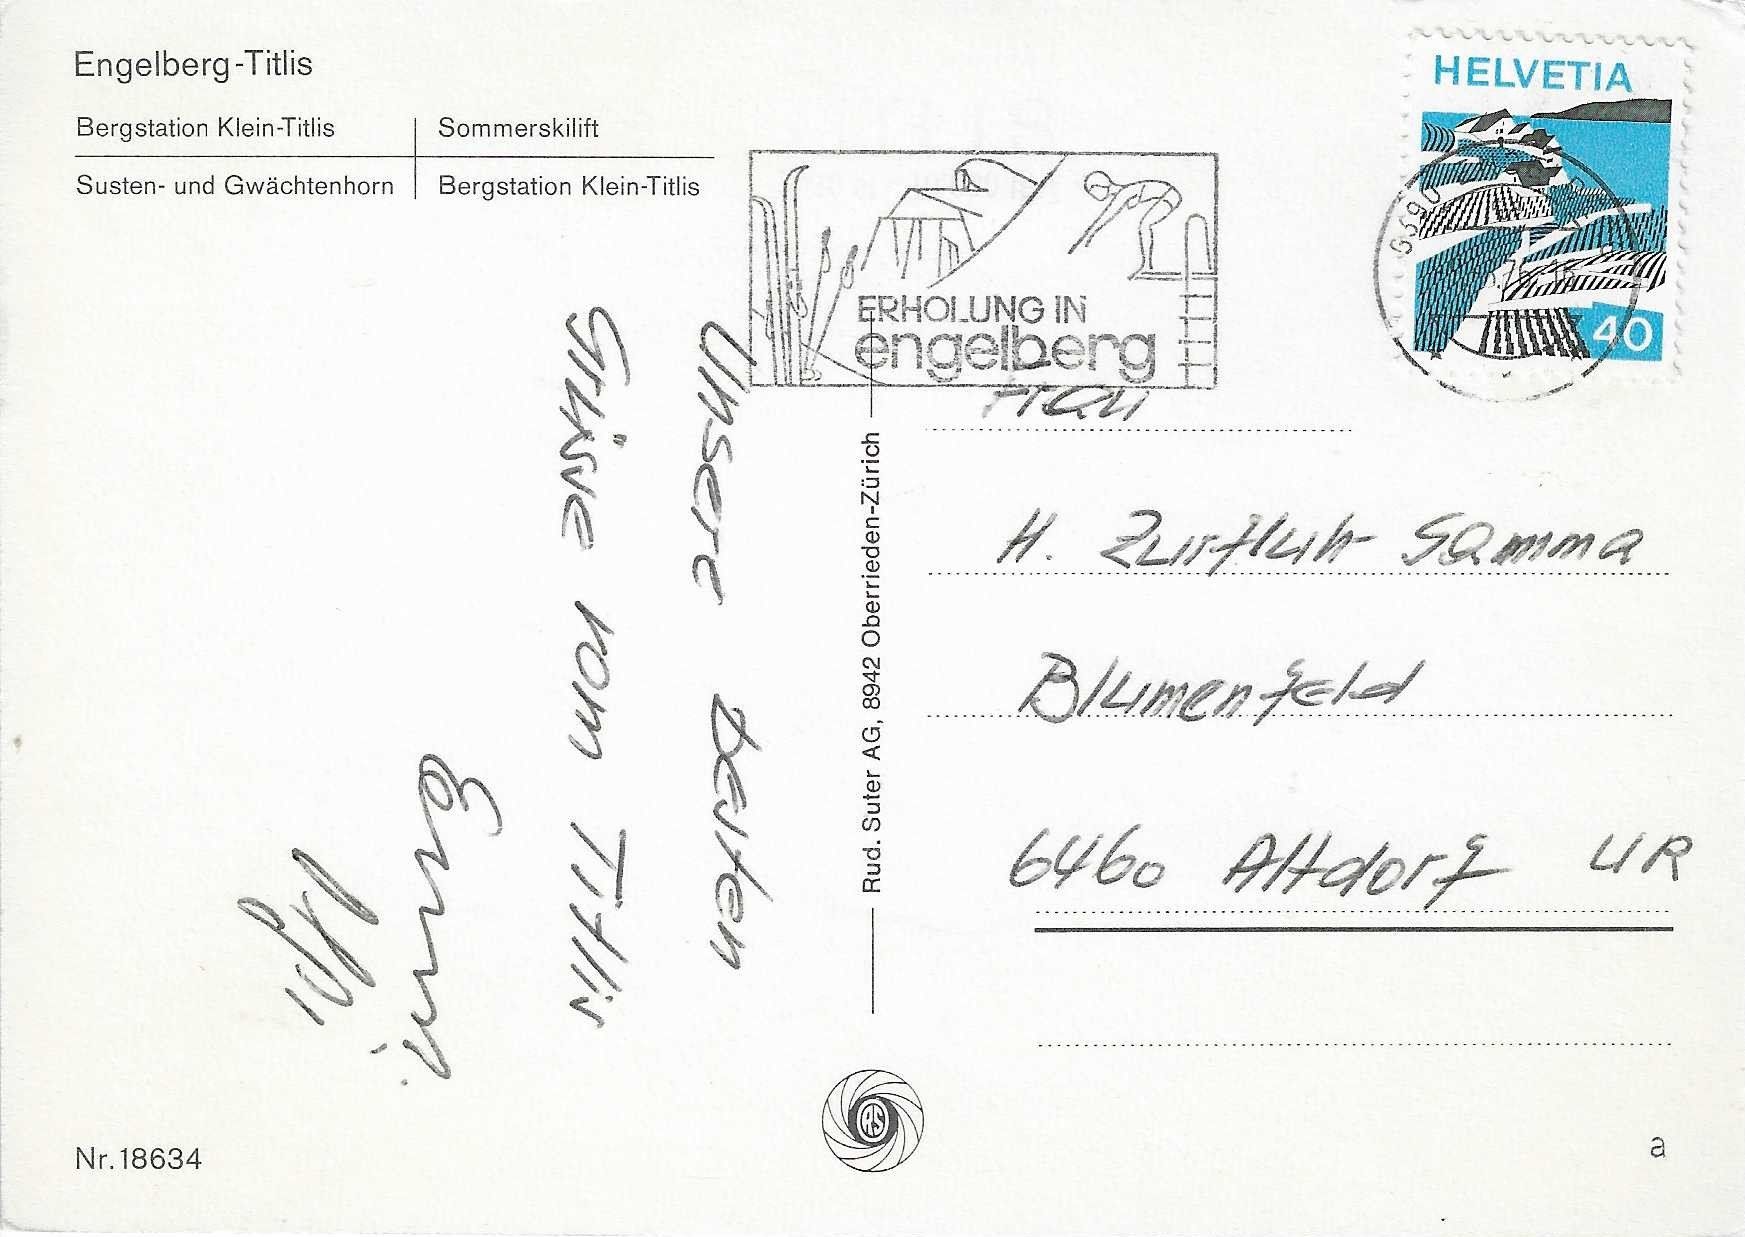 Engelberg-Titlis
Bergstation Klein-Titlis
Sommerskilift
Susten- und Gwächtenhorn
Bergstation Klein-Titlis
HELVETIA
40
6390
ERHOLUNG IN
engelberg
Unsere besten
Grüsse vom Titlis
Erwin
Rud. Suter AG, 8942 Oberrieden-Zürich
Frau
H. Zurfluh Gamma
Blumenfeld
6460 Altdorf UR
RS
Nr. 18634
a